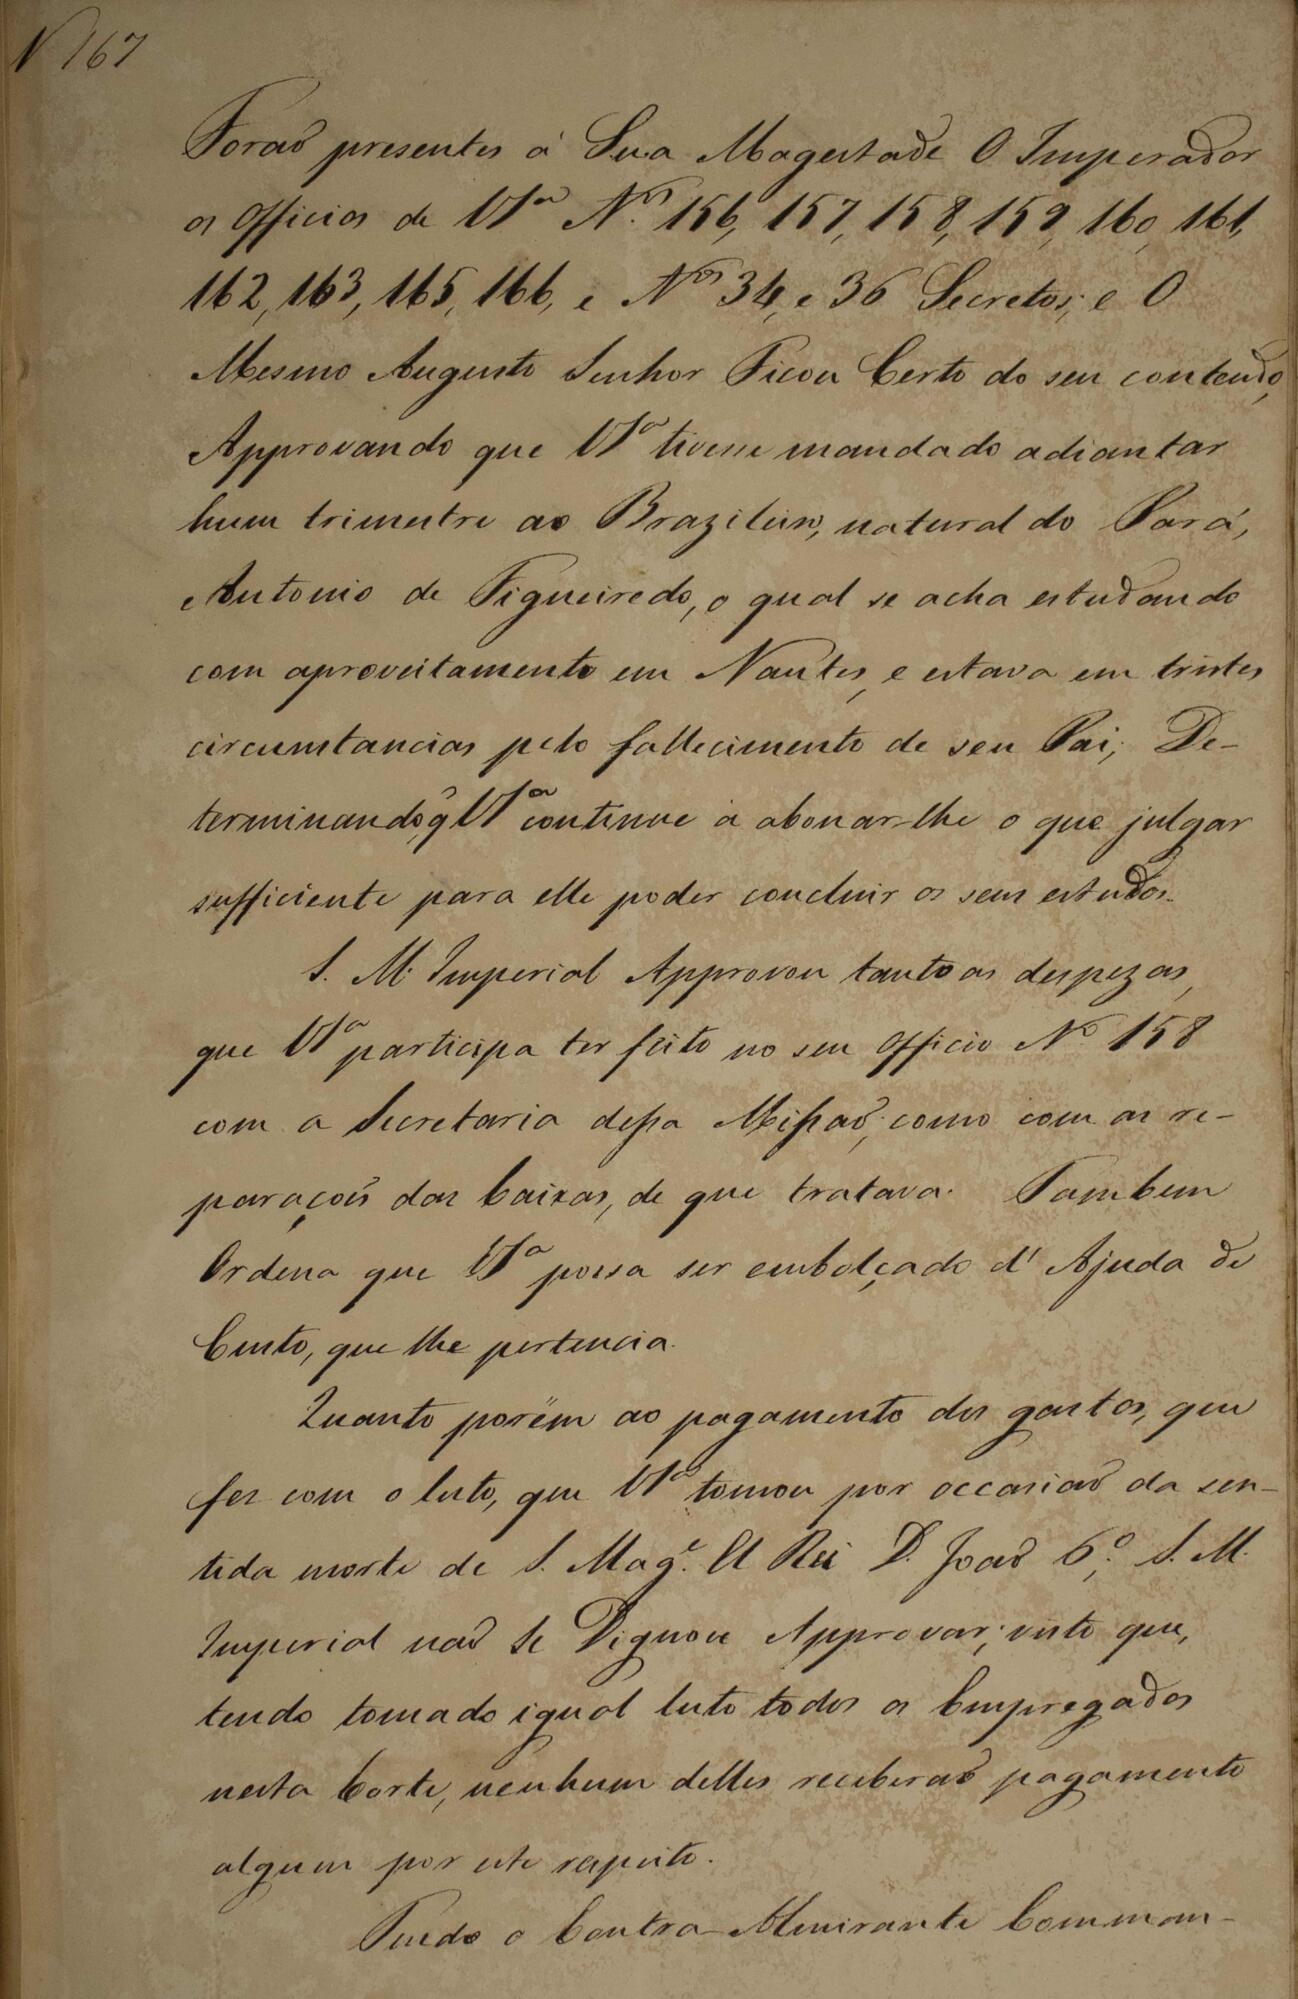 N 167
Foraõ presentes á Sua Magestade O Imperador
os Officios de VSª N.os 156, 157, 158, 159, 160, 161,
162, 163, 165, 166, e Nos 34, e 36 Secretos; e O
Mesmo Augusto Senhor Ficou Certo do seu contendo,
Approvando que VSª tivesse mandado adiantar
hum trimestre ao Brazileiro, natural do Pará,
Antonio de Figueiredo, o qual se acha estudando
com aproveitamento em Nantes, e estava em tristes
circumstancias pelo fallecimento de seu Pai; De-
terminando, q̃ VSª continue a abonar-lhe o que julgar
sufficiente para elle poder concluir os seus estudos.
S. M. Imperial Approvou tanto as despezas,
que VSª participa ter feito no seu Officio Nº 158
com a Secretaria dessa Missaõ; como com as re-
paraçoẽs das Caixas, de que tratava. Tambem
Ordena que VSª possa ser embolçado d' Ajuda de
Custo, que lhe pertencia.
Quanto porẽm ao pagamento dos gastos, que
fez com o luto, que VSª tomou por occasiaõ da sen-
tida morte de S. Mag.e El Rei D. Joaõ 6º, S. M.
Imperial naõ Se Dignou Approvar; visto que,
tendo tomado igual luto todos os Empregados
nesta Corte, nenhum delles receberaõ pagamento
algum por este respeito.
Tendo o Contra-Almirante Comman-